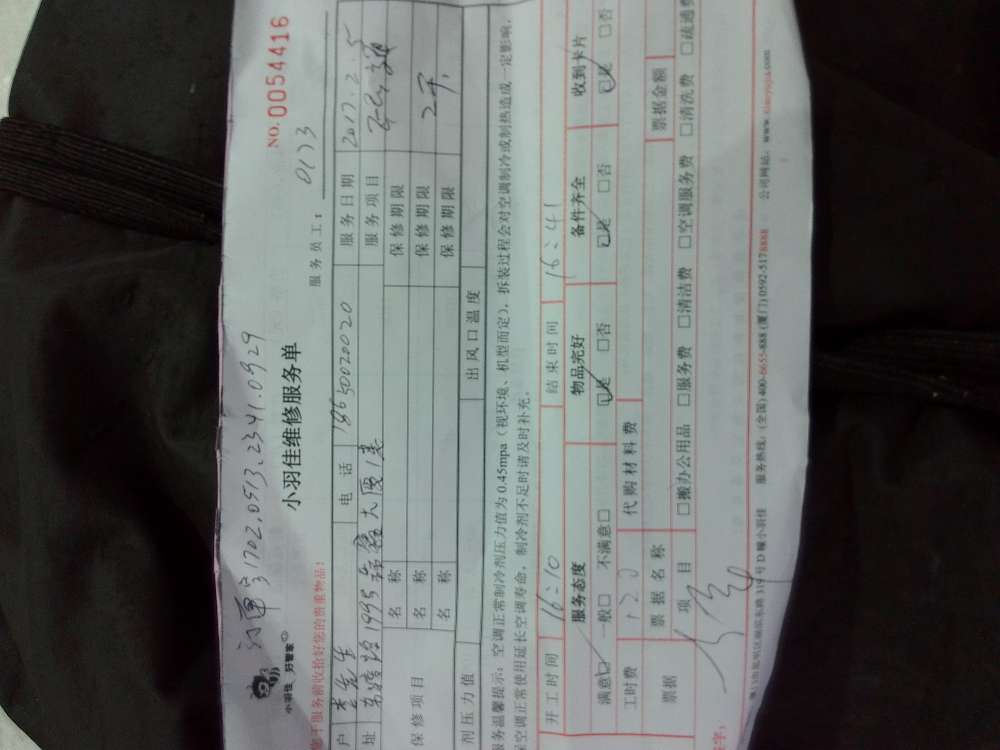 订单号1702.0513.2341.0929
小羽佳 好管家
小羽佳维修服务单
NO. 0054416
服务员工： 0173
您于服务前收拾好您的贵重物品：
户 李先生 电 话 18650020020 服务日期 2017.2.5
址 1995 大厦1楼 服务项目
保修项目
名 称 保修期限
名 称 保修期限 2个
名 称 保修期限
剂压力值 出风口温度
服务温馨提示：空调正常制冷剂压力值为0.45mpa（视环境、机型而定），拆装过程会对空调制冷或制热造成一定影响，
保空调正常使用延长空调寿命，制冷剂不足时请及时补充。
开工时间 16:10 结束时间 16:41
服务态度 物品完好 备件齐全 收到卡片
满意☑ 一般□ 不满意□ ☑是 □否 ☑是 □否 ☑是 □否
工时费 120 代购材料费
票据 票据名称 票据金额
项 目 □搬办公用品 □服务费 □清洁费 □空调服务费 □清洗费 □疏通费
签字：
319号D幢小羽佳 服务热线：(全国)400-6655-888 (厦门)0592-5178888 公司网站：www.xiaoyujia.com